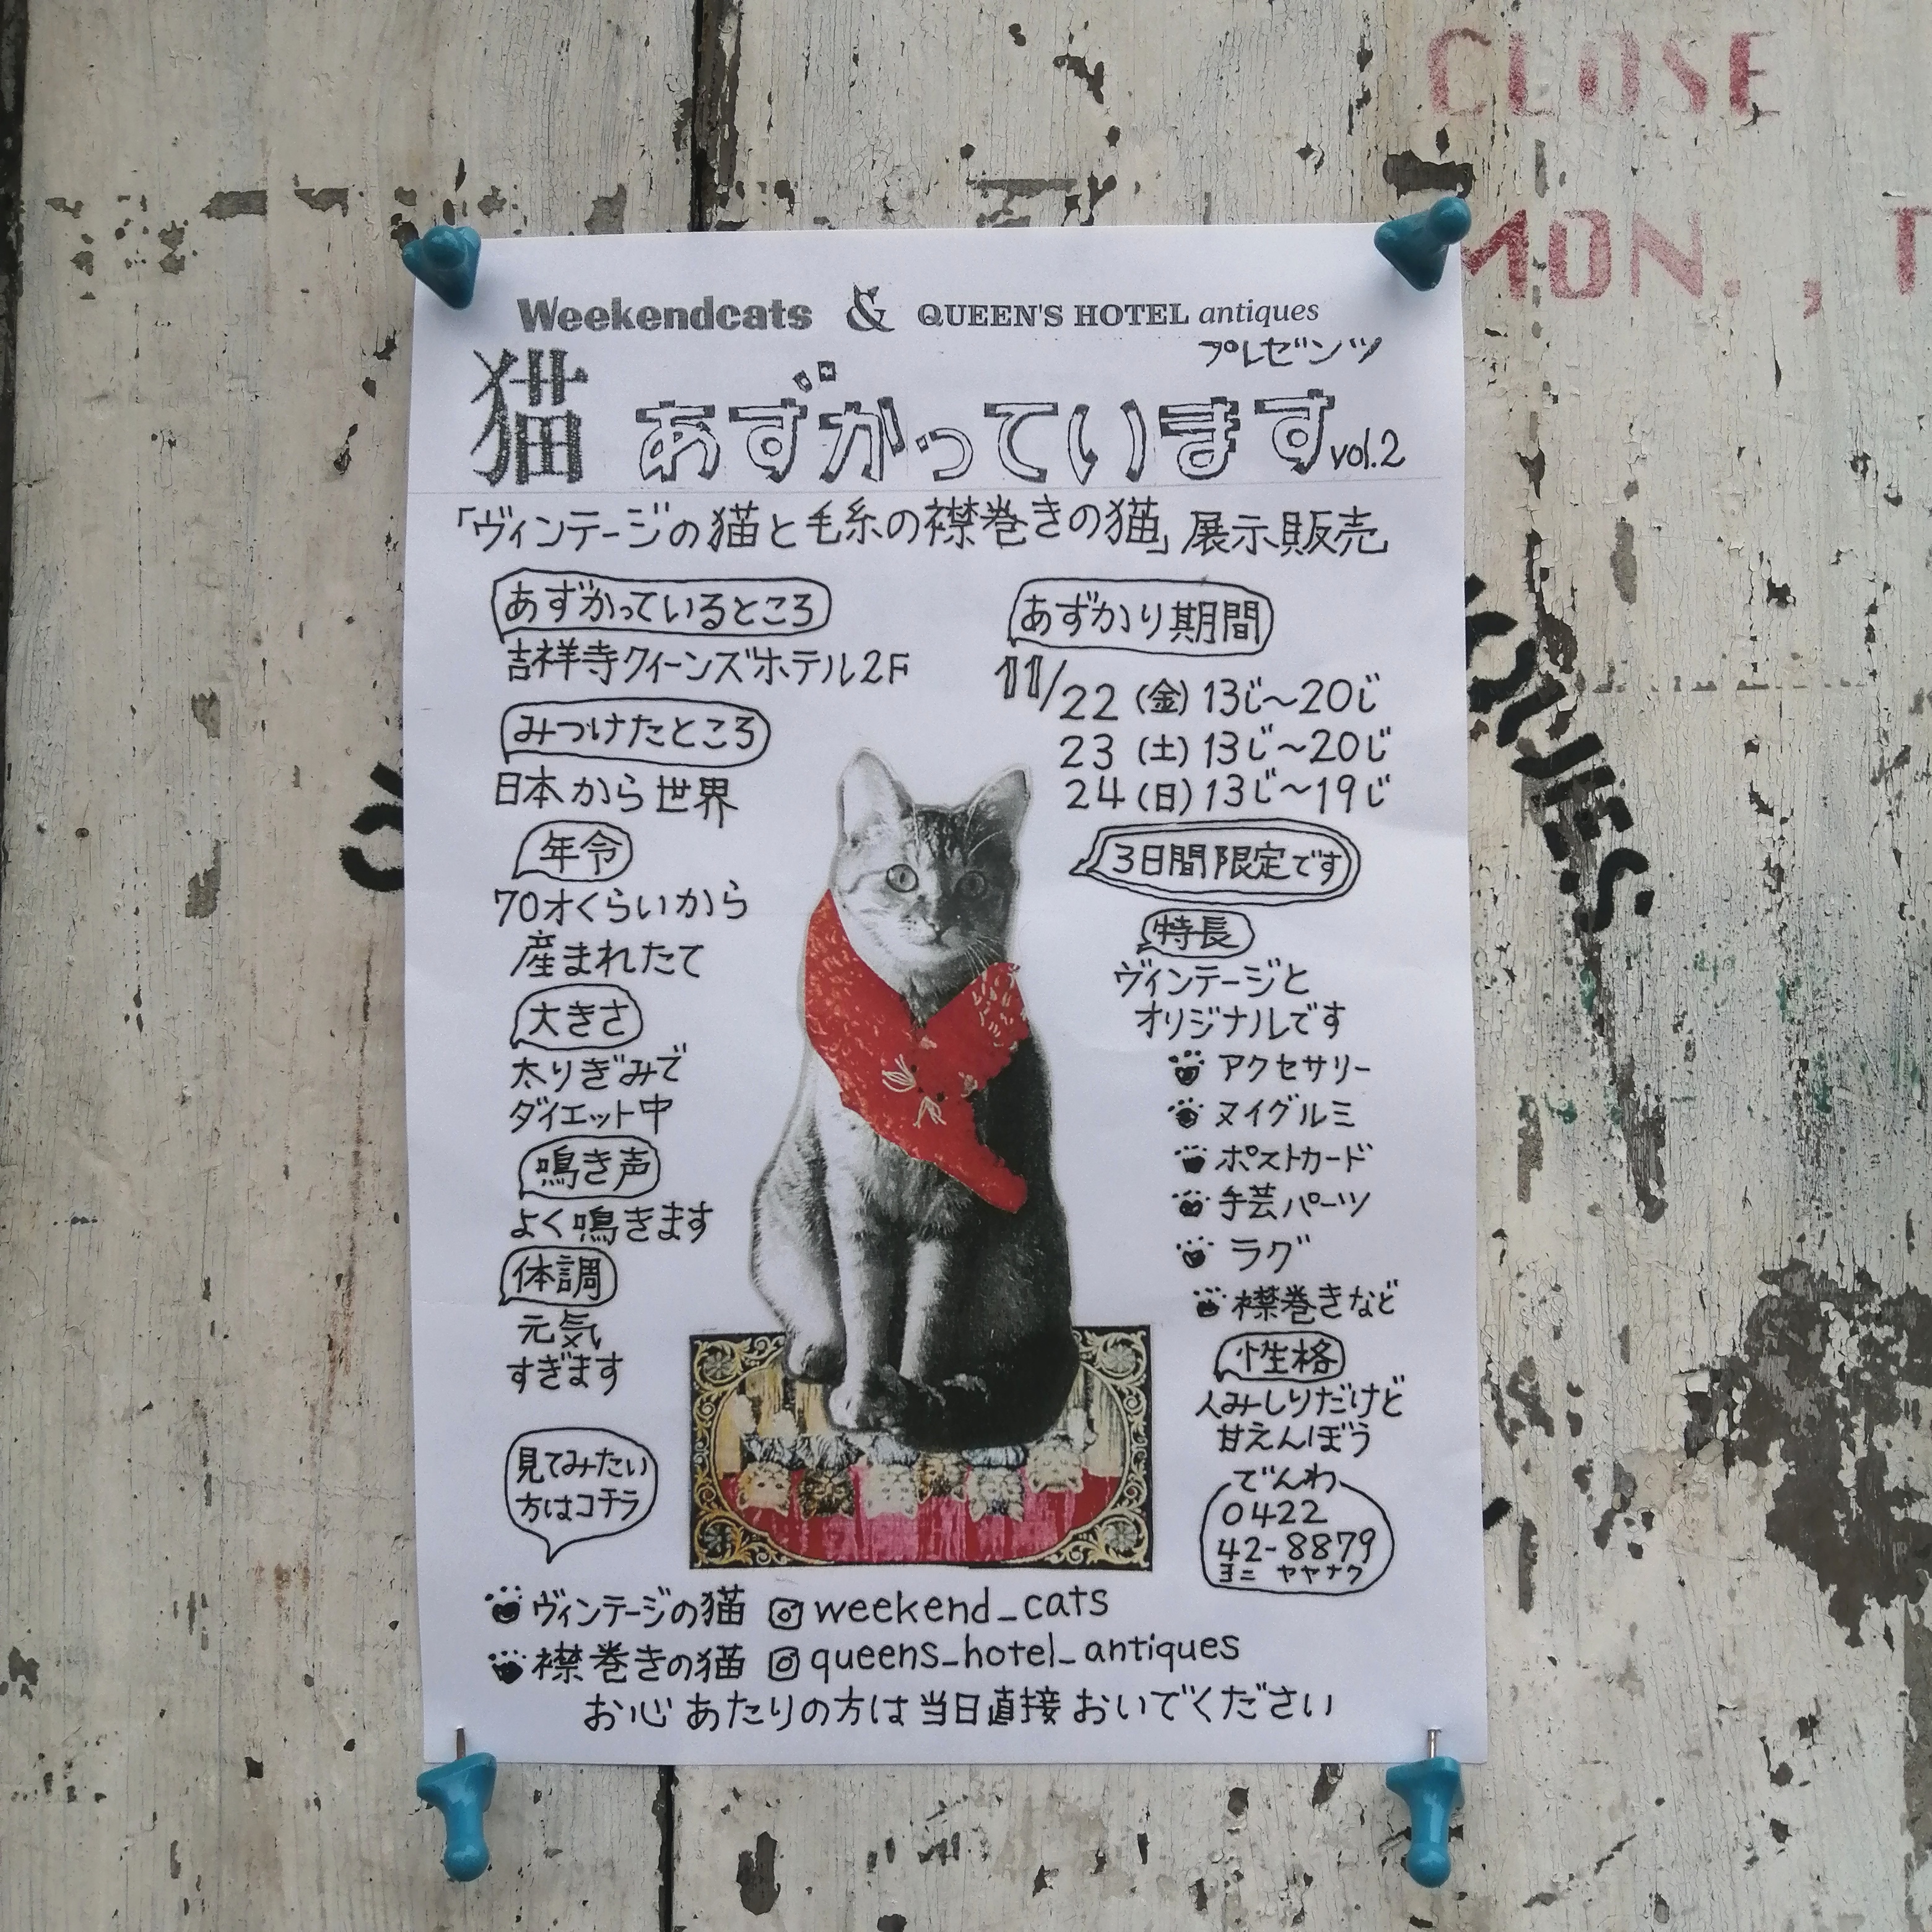 CLOSE
MON., T
Weekendcats & QUEEN'S HOTEL antiques
プレゼンツ
猫 あずかっています vol.2
「ヴィンテージの猫と毛糸の襟巻きの猫」展示販売
あずかっているところ
吉祥寺クィーンズホテル2F
みつけたところ
日本から世界
年令
70才くらいから
産まれたて
大きさ
太りぎみで
ダイエット中
鳴き声
よく鳴きます
体調
元気
すぎます
見てみたい
方はコチラ
あずかり期間
11/22 (金) 13じ〜20じ
23 (土) 13じ〜20じ
24 (日) 13じ〜19じ
3日間限定です
特長
ヴィンテージと
オリジナルです
アクセサリー
ヌイグルミ
ポストカード
手芸パーツ
ラグ
襟巻きなど
性格
人みしりだけど
甘えんぼう
でんわ
0422
42-8879
ヨニ ヤヤナク
ヴィンテージの猫 weekend_cats
襟巻きの猫 queens_hotel_antiques
お心あたりの方は当日直接おいでください